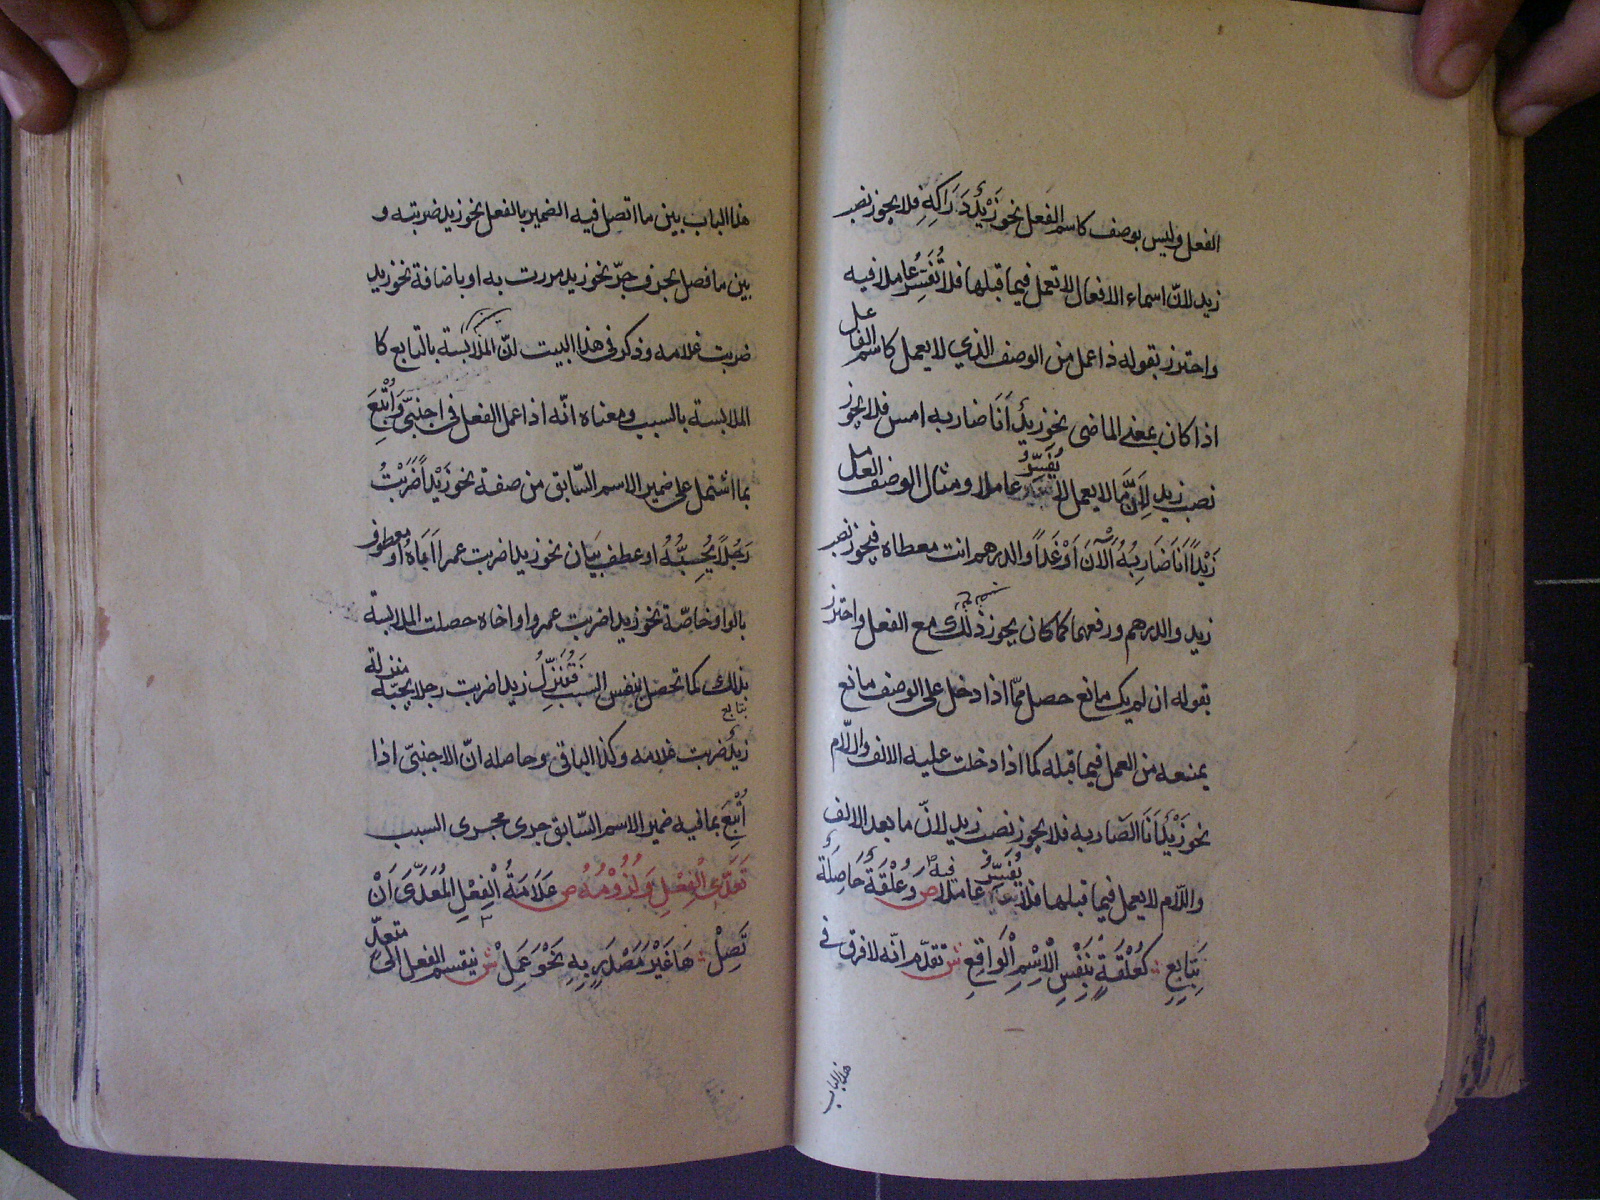 الفعل وليس بوصف كاسم الفعل نحو زَيْدٌ دَرَاكِهِ فلا يجوز نصب
زيد لانّ اسماء الافعال لا تعمل فيما قبلها فلا تُفَسِّرُ عاملا فيه
واحترز بقوله ذا عمل من الوصف الذي لا يعمل كاسم الفاعل
اذا كان بمعنى الماضى نحو زيدٌ اَنَا ضاربه امس فلا يجوز
نصب زيد لِاَنَّ مَا لا يعمل لا يُفَسِّرُ عاملا ومثال الوصف العامل
زَيْداً اَنَا ضَارِبُهُ اَلْآنَ اَوْ غَداً والدرهم انت معطاه فيجوز نصب
زيد والدرهم ورفعهما كما كان يجوز ذلك مع الفعل واحترز
بقوله ان لم يك مانع حصل ممّا اذا دخل على الوصف مانع
يمنعه من العمل فيما قبله كما اذا دخلت عليه الالف واللّام
نحو زَيْدٌ اَنَا الضّاربه فلا يجوز نصب زيد لانّ ما بعد الالف
واللّام لا يعمل فيما قبلها فلا يُفَسِّرُ عاملا فيه ص وَعُلْقَةٌ حَاصِلَةٌ
بِتَابِعٍ كَعُلْقَةٍ بِنَفْسِ الْاِسْمِ الْوَاقِعِ ش تقدّم انّه لا فرق فى
هذا الباب
هذا الباب بين ما اتصل فيه الضمير بالفعل نحو زيد ضربته و
بين ما فصل بحرف جرّ نحو زيد مررت به او باضافة نحو زيد
ضربت غلامه وذكر فى هذا البيت انّ الملابسة بالتابع كا
الملابسة بالسبب ومعناه انّه اذا عمل الفعل فى اجنبىّ وَاُتْبِعَ
بما اشتمل على ضمير الاسم السّابق من صفة نحو زَيْداً ضَرَبْتُ
رَجُلاً يُحِبُّهُ او عطف بَيَان نحو زيدا ضربت عمرا اَبَاهُ او معطوف
بالواو خاصّة نحو زيدا ضربت عمروا واخاه حصلت الملابسة
بذلك كما تحصل بنفس السبب فَتُنَزِّلُ زيدا ضربت رجلا يحبّه منزلة
بتابع
زيدٌ ضربت غلامه وكذا الباقى وحاصله انّ الاجنبىّ اذا
اُتْبِعَ بما فيه ضمير الاسم السّابق جرى مجرى السبب
تَعَدِّى الْفِعْلِ وَلُزُوْمُهُ ص عَلَامَةُ الْفِعْلِ الْمُعَدَّى اَنْ
تَصِلْ هَا غَيْرِ مَصْدَرٍ بِهِ نَحْوَ عَمِلْ ش ينقسم الفعل الى متعدٍّ